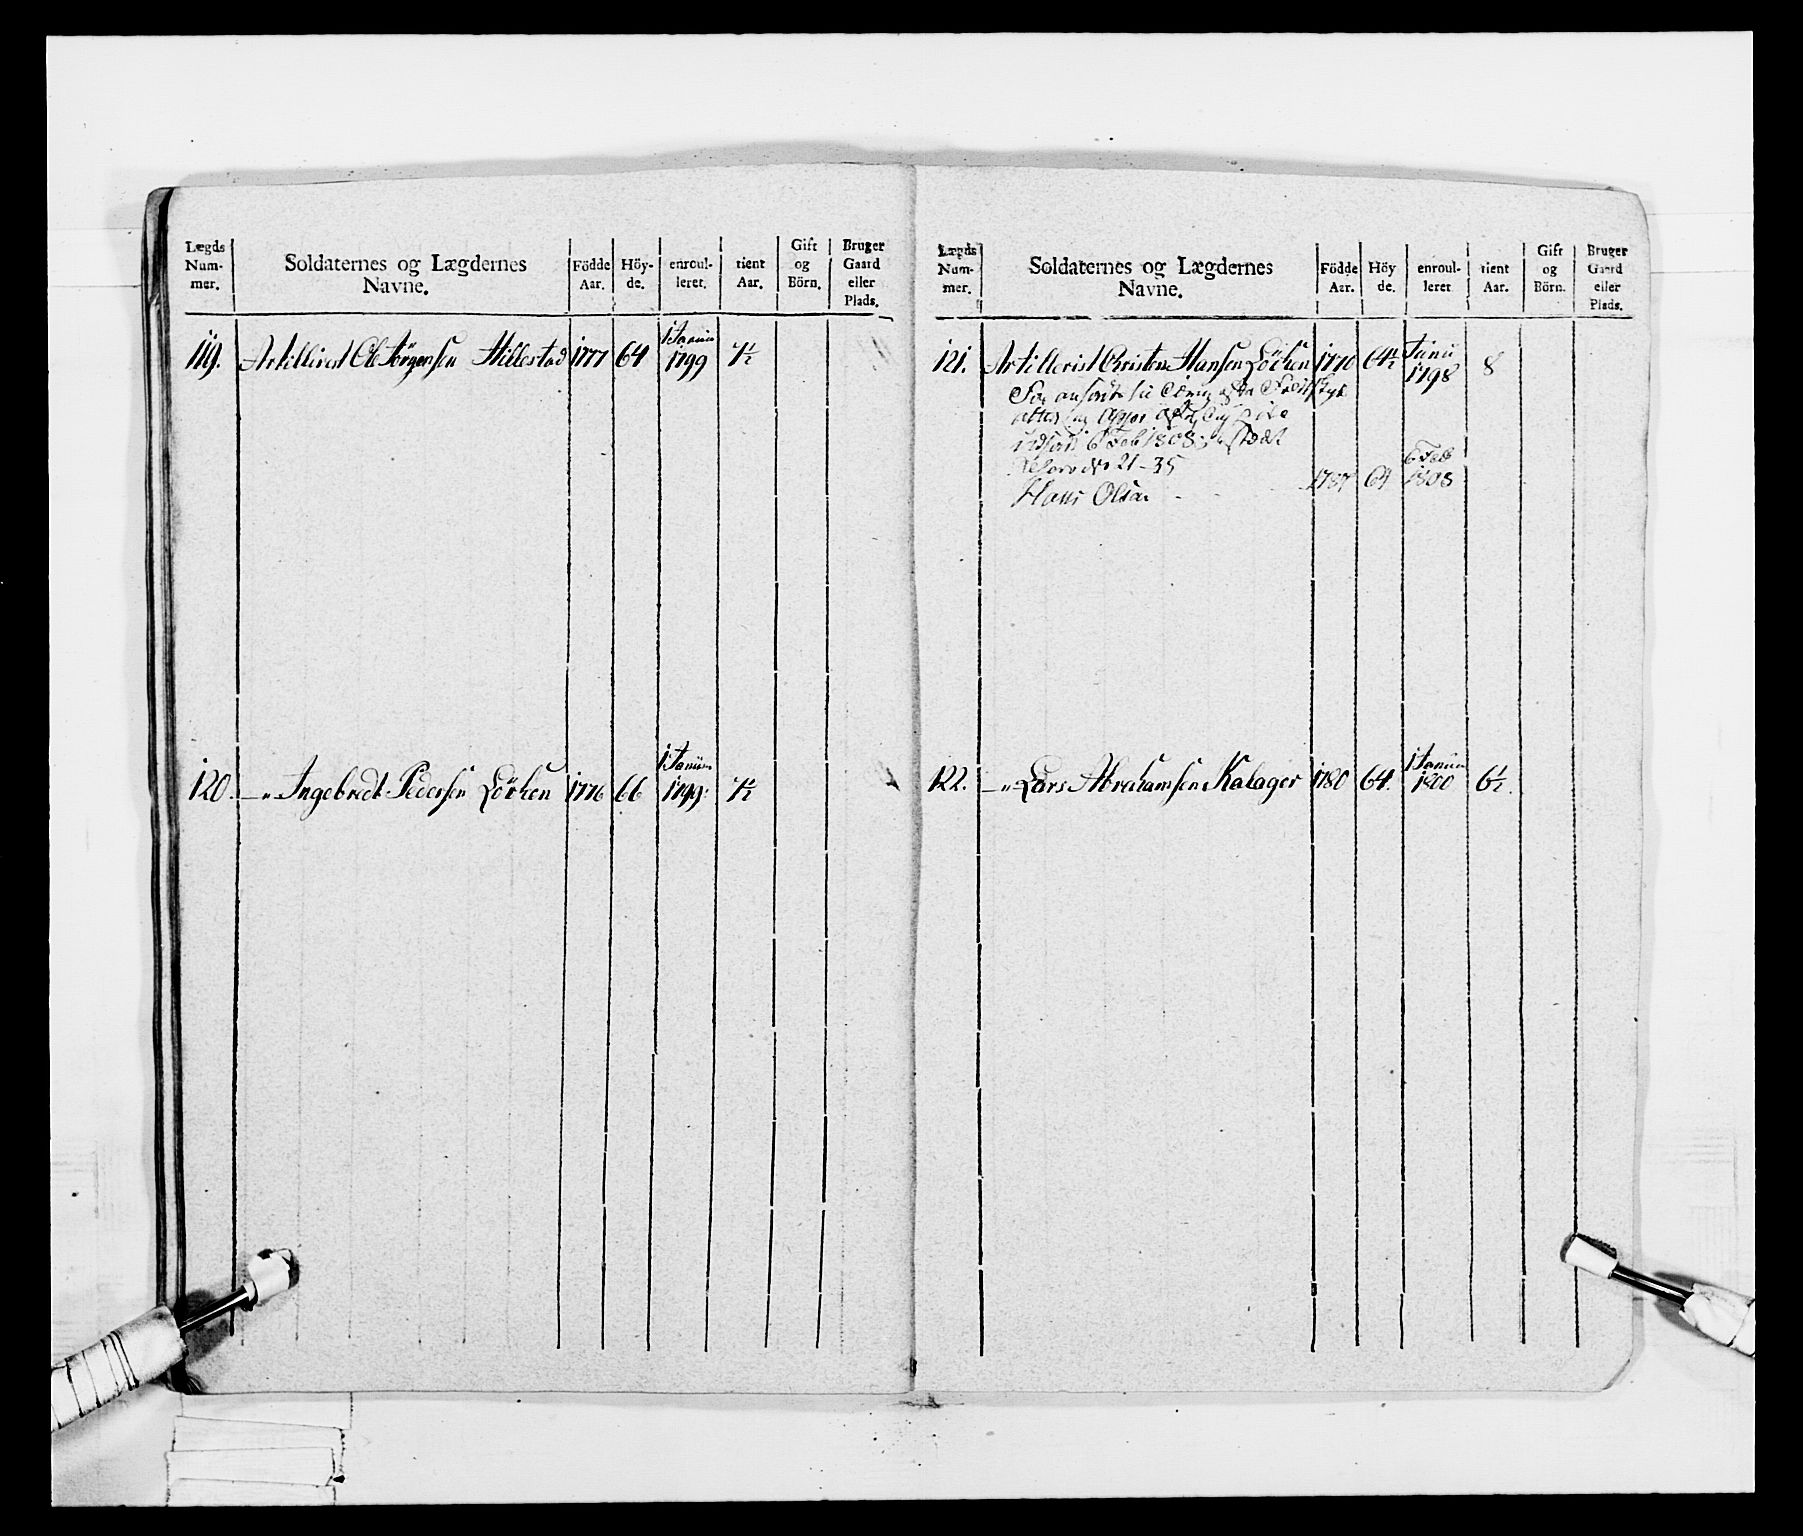 Lægds Num- mer. | Soldaternes og Lægdernes Navne. | Födde Aar. | Höy- de. | enroul- leret. | tient Aar. | Gift og Börn. | Bruger Gaard eller Plads.
119. Artillirist Ole Jörgensen Hillestad 1777 64 1 Januii 1799 7½
120. —„ Ingebredt Pedersen Lörken 1776 66 1 Januii 1799: 7½
Lægds Num- mer. | Soldaternes og Lægdernes Navne. | Födde Aar. | Höy de. | enroul- leret | tient Aar. | Gift og Börn. | Bruger Gaard eller Plads.
121. Artillerist Christen Hansen Lörken 1770 64½ Junii 1798 8
6 Feb 1808
21–35
Hans Olsen 1787 64 6 Feb 1808
122. —„ Lars Abrahamsen Kalager 1780 64. 1 Januii 1800 6½.